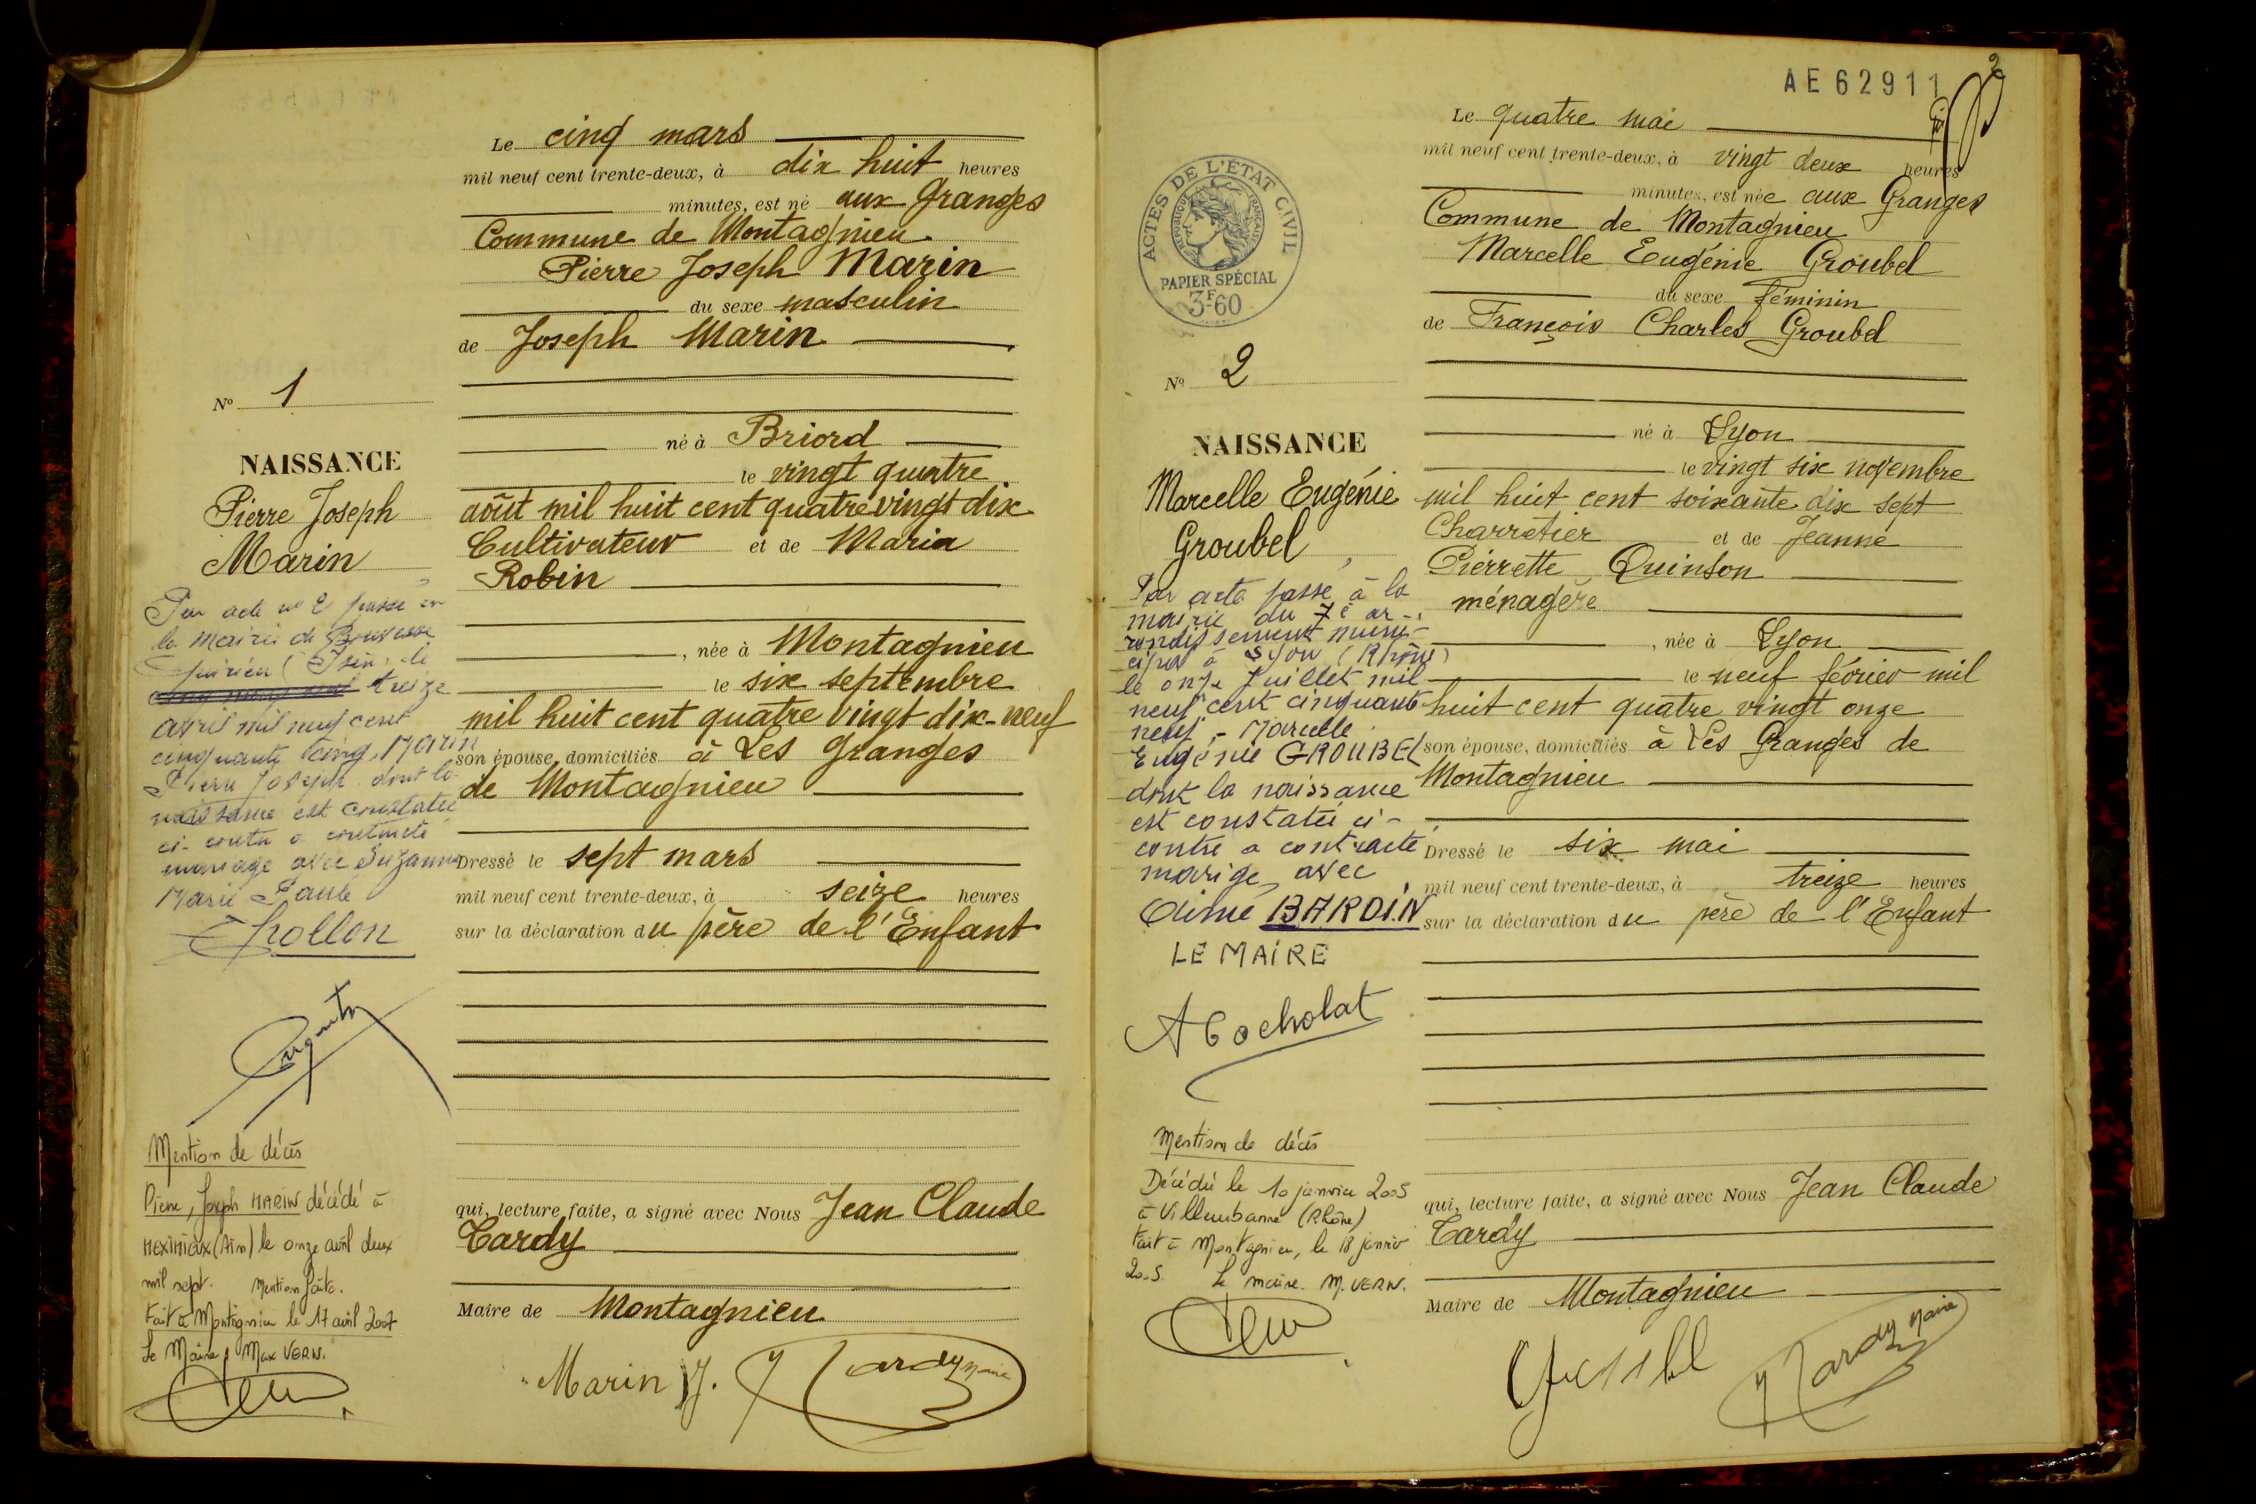 Le cinq mars
mil neuf cent trente-deux, à dix huit heures
minutes, est né aux Granges
Commune de Montagnieu
Pierre Joseph Marin
du sexe masculin
de Joseph Marin
né à Briord
le vingt quatre
août mil huit cent quatre vingt dix
Cultivateur et de Maria
Robin
, née à Montagnieu
le six septembre
mil huit cent quatre vingt dix-neuf
son épouse, domiciliés à Les Granges
de Montagnieu
Dressé le sept mars
mil neuf cent trente-deux, à seize heures
sur la déclaration du père de l'Enfant
qui, lecture faite, a signé avec Nous Jean Claude
Tardy
Maire de Montagnieu
Marin J. Tardy maire
No 1
NAISSANCE
Pierre Joseph
Marin
Par acte no 2 passé en
la mairie de Bouvesse
Quirieu (Isère) le
treize
avril mil neuf cent
cinquante cinq, Marin
Pierre Joseph dont la
naissance est constatée
ci-contre a contracté
mariage avec Suzanne
Marie Paule
Chollon
Mention de décès
Pierre, Joseph MARIN décédé à
MEXIMIEUX (Ain) le onze avril deux
mil sept. Mention faite.
Fait à Montagnieu le 17 avril 2007
Le Maire, Max VERN.
AE62911
2
Le quatre mai
mil neuf cent trente-deux, à vingt deux heures
minutes, est née aux Granges
Commune de Montagnieu
Marcelle Eugénie Groubel
du sexe féminin
de François Charles Groubel
né à Lyon
le vingt six novembre
mil huit cent soixante dix sept
Charretier et de Jeanne
Pierrette Quinson
ménagère
, née à Lyon
le neuf février mil
huit cent quatre vingt onze
son épouse, domiciliés à Les Granges de
Montagnieu
Dressé le six mai
mil neuf cent trente-deux, à treize heures
sur la déclaration du père de l'Enfant
qui, lecture faite, a signé avec Nous Jean Claude
Tardy
Maire de Montagnieu
Tardy maire
ACTES DE L'ÉTAT CIVIL
RÉPUBLIQUE FRANÇAISE
PAPIER SPÉCIAL
3F60
No 2
NAISSANCE
Marcelle Eugénie
Groubel
Par acte passé à la
mairie du 7e ar-
rondissement muni-
cipal à Lyon (Rhône)
le onze Juillet mil
neuf cent cinquante
neuf, Marcelle
Eugénie GROUBEL
dont la naissance
est constatée ci-
contre a contracté
mariage avec
Aimé BARDIN
LE MAIRE
A Cocholat
Mention de décès
Décédée le 10 janvier 2005
à Villeurbanne (Rhône)
Fait à Montagnieu, le 18 janvier
2005. Le maire M. VERN.